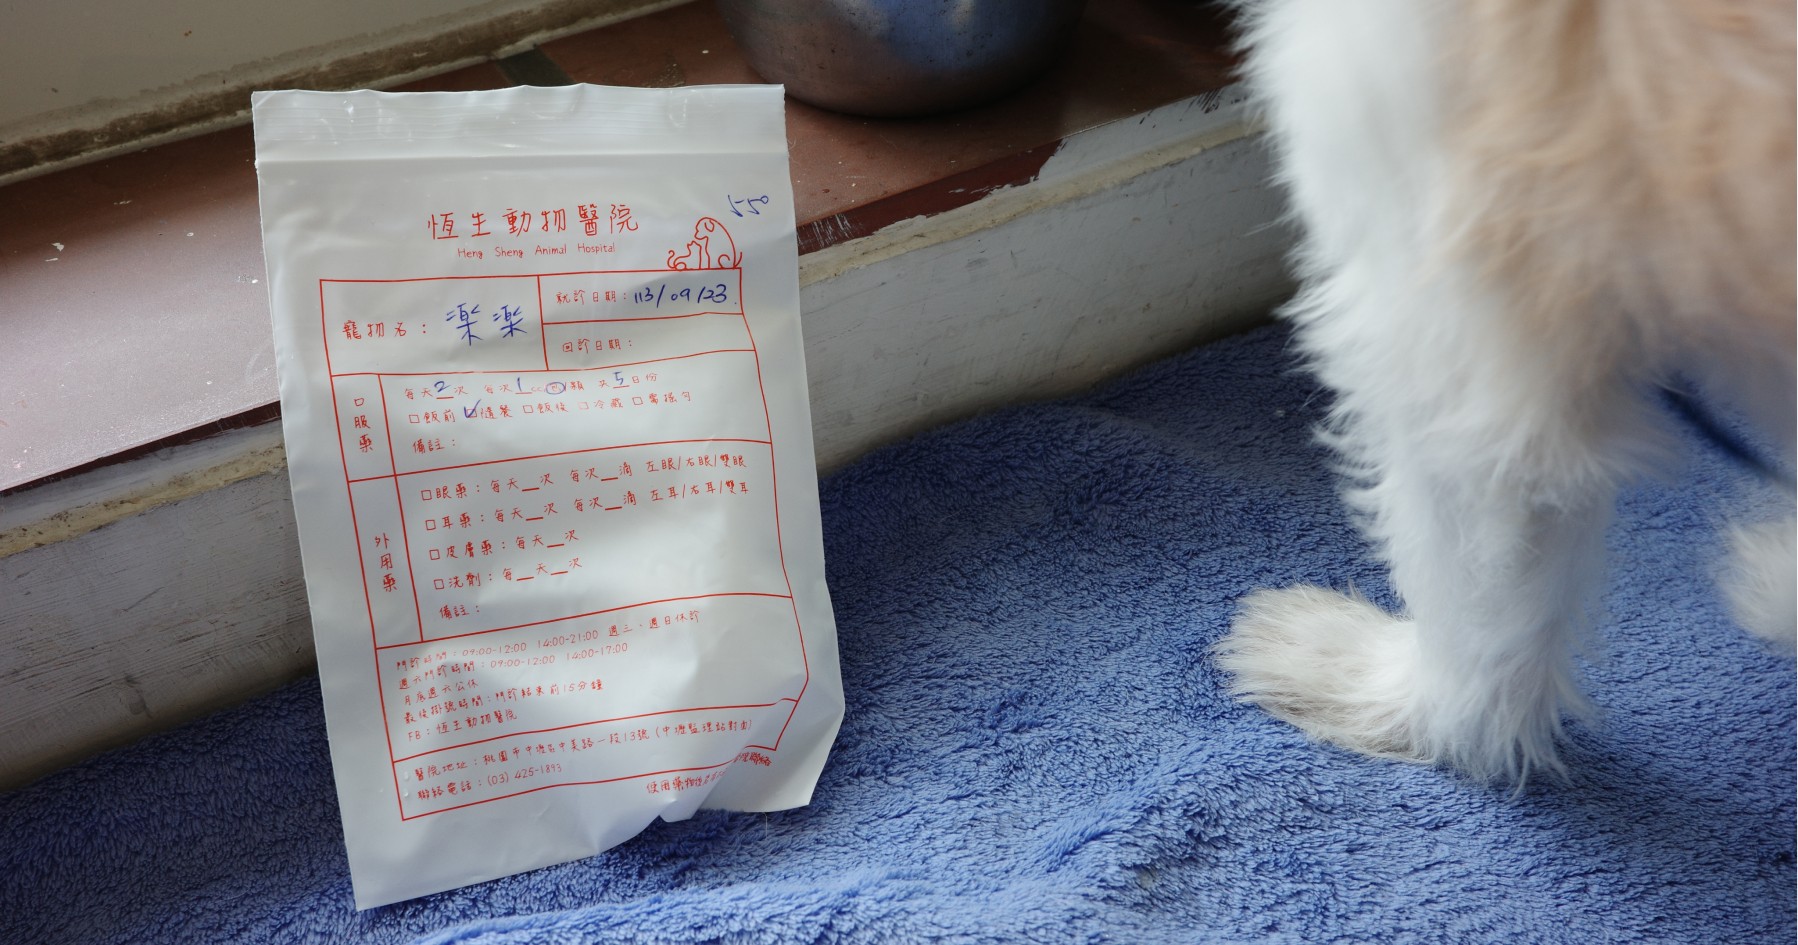 恆生動物醫院
Heng Sheng Animal Hospital
550
寵物名：楽楽
就診日期：113/09/23.
回診日期：
口服藥
每天2次 每次1cc/包/顆 共5日份
□飯前 ☑隨餐 □飯後 □冷藏 □需搖勻
備註：
外用藥
□眼藥：每天__次 每次__滴 左眼/右眼/雙眼
□耳藥：每天__次 每次__滴 左耳/右耳/雙耳
□皮膚藥：每天__次
□洗劑：每__天__次
備註：
門診時間：09:00-12:00 14:00-21:00 週三、週日休診
週六門診時間：09:00-12:00 14:00-17:00
月底週六公休
最後掛號時間：門診結束前15分鐘
FB：恆生動物醫院
醫院地址：桃園市中壢區中美路一段13號（中壢監理站對面）
聯絡電話：(03) 425-1893
使用藥物後若有
聯絡